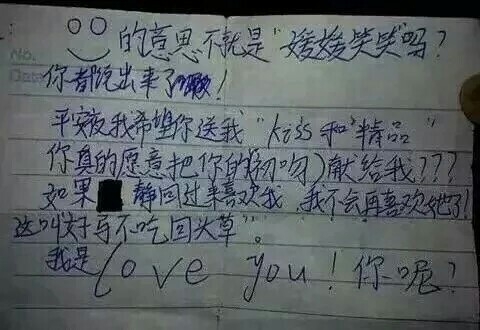 No.
Date
的意思不就是"媛媛笑笑"吗?
你都说出来了!
平安夜我希望你送我"kiss和"精品"
你真的愿意把你的(初吻)献给我???
如果 静回过来喜欢我,我不会再喜欢她了!
这叫好马不吃回头草"。
我是love you!你呢?